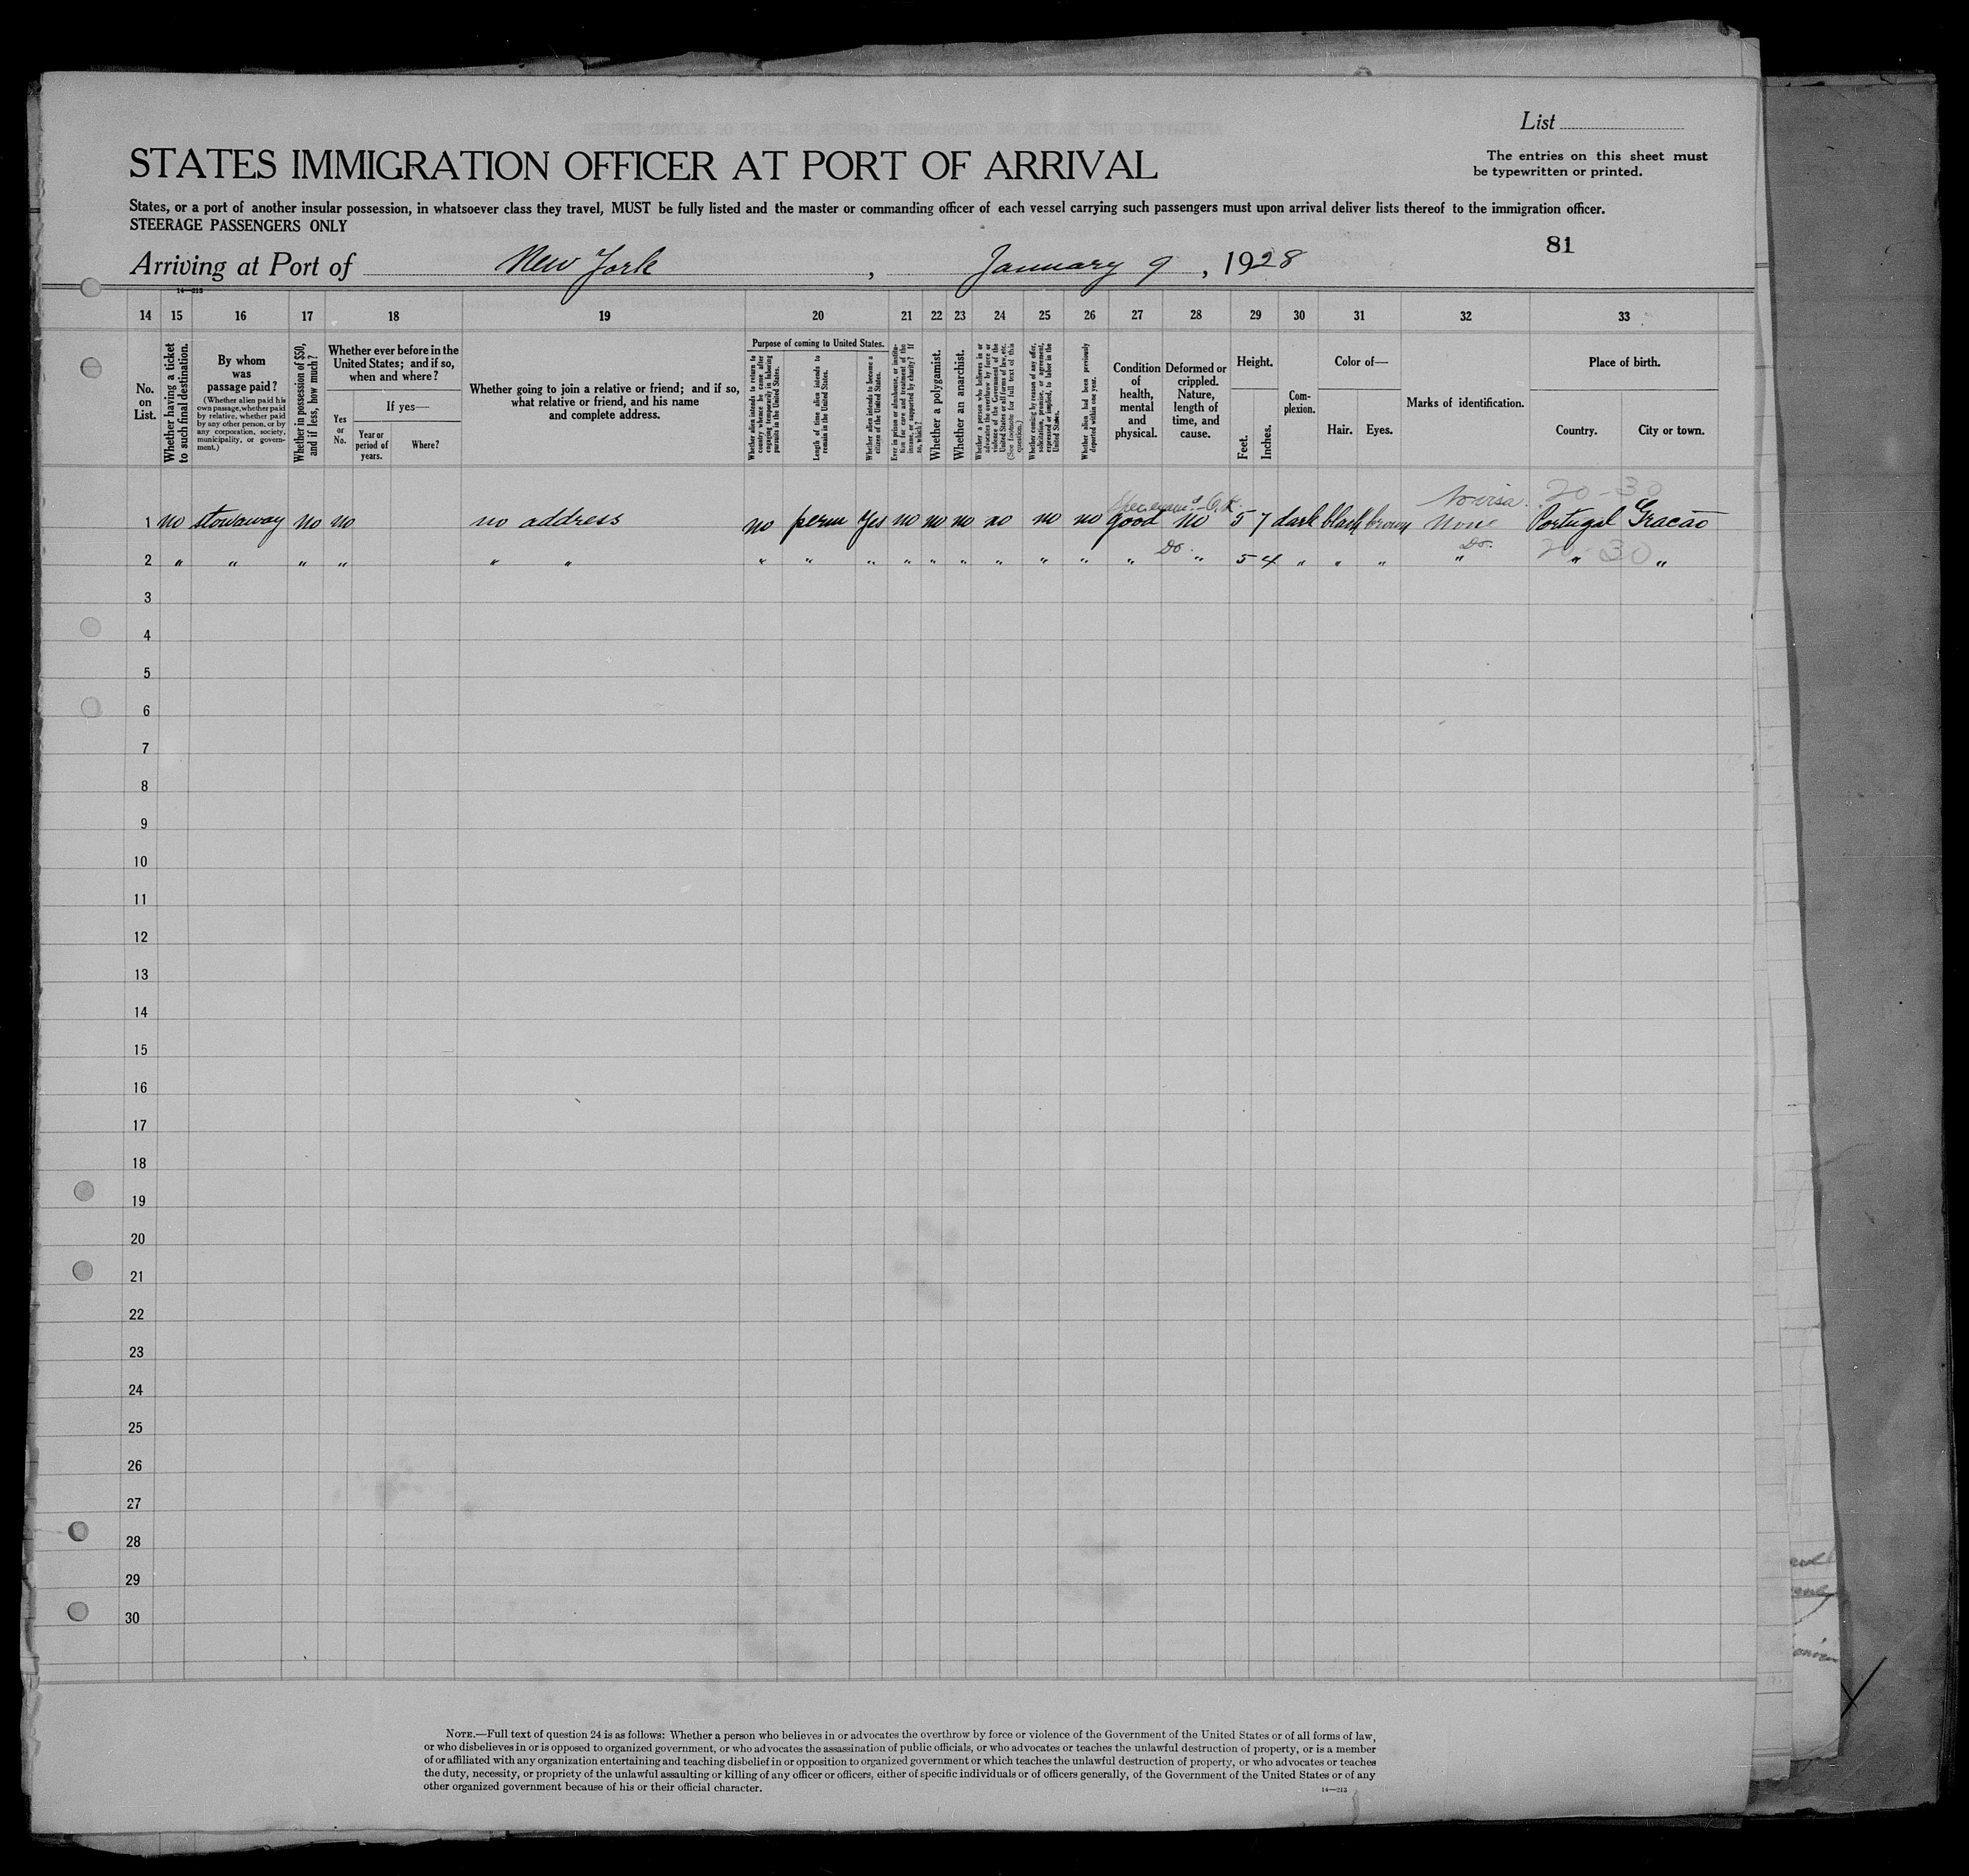 List
STATES IMMIGRATION OFFICER AT PORT OF ARRIVAL
The entries on this sheet must
be typewritten or printed.
States, or a port of another insular possession, in whatsoever class they travel, MUST be fully listed and the master or commanding officer of each vessel carrying such passengers must upon arrival deliver lists thereof to the immigration officer.
STEERAGE PASSENGERS ONLY
81
Arriving at Port of New York, January 9, 1928
14—213
14 15 16 17 18 19 20 21 22 23 24 25 26 27 28 29 30 31 32 33
No. on List.
Whether having a ticket to such final destination.
By whom was passage paid?
(Whether alien paid his own passage, whether paid by relative, whether paid by any other person, or by any corporation, society, municipality, or government.)
Whether in possession of $50, and if less, how much?
Whether ever before in the United States; and if so, when and where?
Yes or No.
If yes—
Year or period of years.
Where?
Whether going to join a relative or friend; and if so, what relative or friend, and his name and complete address.
Purpose of coming to United States.
Whether alien intends to return to country whence he came after engaging temporarily in laboring pursuits in the United States.
Length of time alien intends to remain in the United States.
Whether alien intends to become a citizen of the United States.
Ever in prison or almshouse, or institution for care and treatment of the insane, or supported by charity? If so, which?
Whether a polygamist.
Whether an anarchist.
Whether a person who believes in or advocates the overthrow by force or violence of the Government of the United States or all forms of law, etc. (See footnote for full text of this question.)
Whether coming by reason of any offer, solicitation, promise, or agreement, expressed or implied, to labor in the United States.
Whether alien had been previously deported within one year.
Condition of health, mental and physical.
Deformed or crippled. Nature, length of time, and cause.
Height.
Feet.
Inches.
Complexion.
Color of—
Hair.
Eyes.
Marks of identification.
Place of birth.
Country.
City or town.
No visa. 20-30
1 no stowaway no no no address no perm yes no no no no no no good no 5 7 dark black brown none Portugal Gracão
Do. Do. 20-30
2 " " " " " " " " " " " " " " " " " 5 4 " " " " " "
3
4
5
6
7
8
9
10
11
12
13
14
15
16
17
18
19
20
21
22
23
24
25
26
27
28
29
30
NOTE.—Full text of question 24 is as follows: Whether a person who believes in or advocates the overthrow by force or violence of the Government of the United States or of all forms of law,
or who disbelieves in or is opposed to organized government, or who advocates the assassination of public officials, or who advocates or teaches the unlawful destruction of property, or is a member
of or affiliated with any organization entertaining and teaching disbelief in or opposition to organized government or which teaches the unlawful destruction of property, or who advocates or teaches
the duty, necessity, or propriety of the unlawful assaulting or killing of any officer or officers, either of specific individuals or of officers generally, of the Government of the United States or of any
other organized government because of his or their official character.
14—213